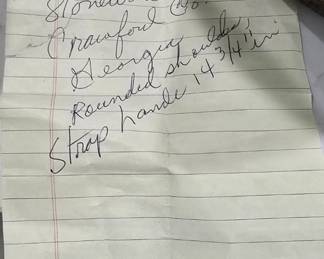 Crawford Co.
Georgia
Rounded shoulder,
Strap hande 14 3/4" in